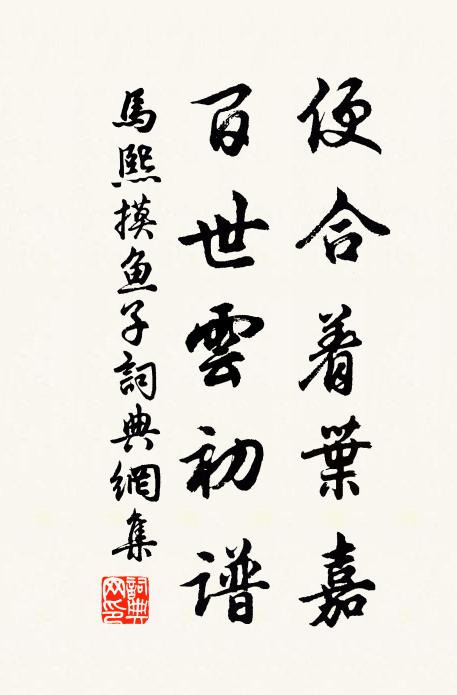 便合着葉嘉
百世雲初譜
馬熙摸鱼子詞典網集
詞典网印